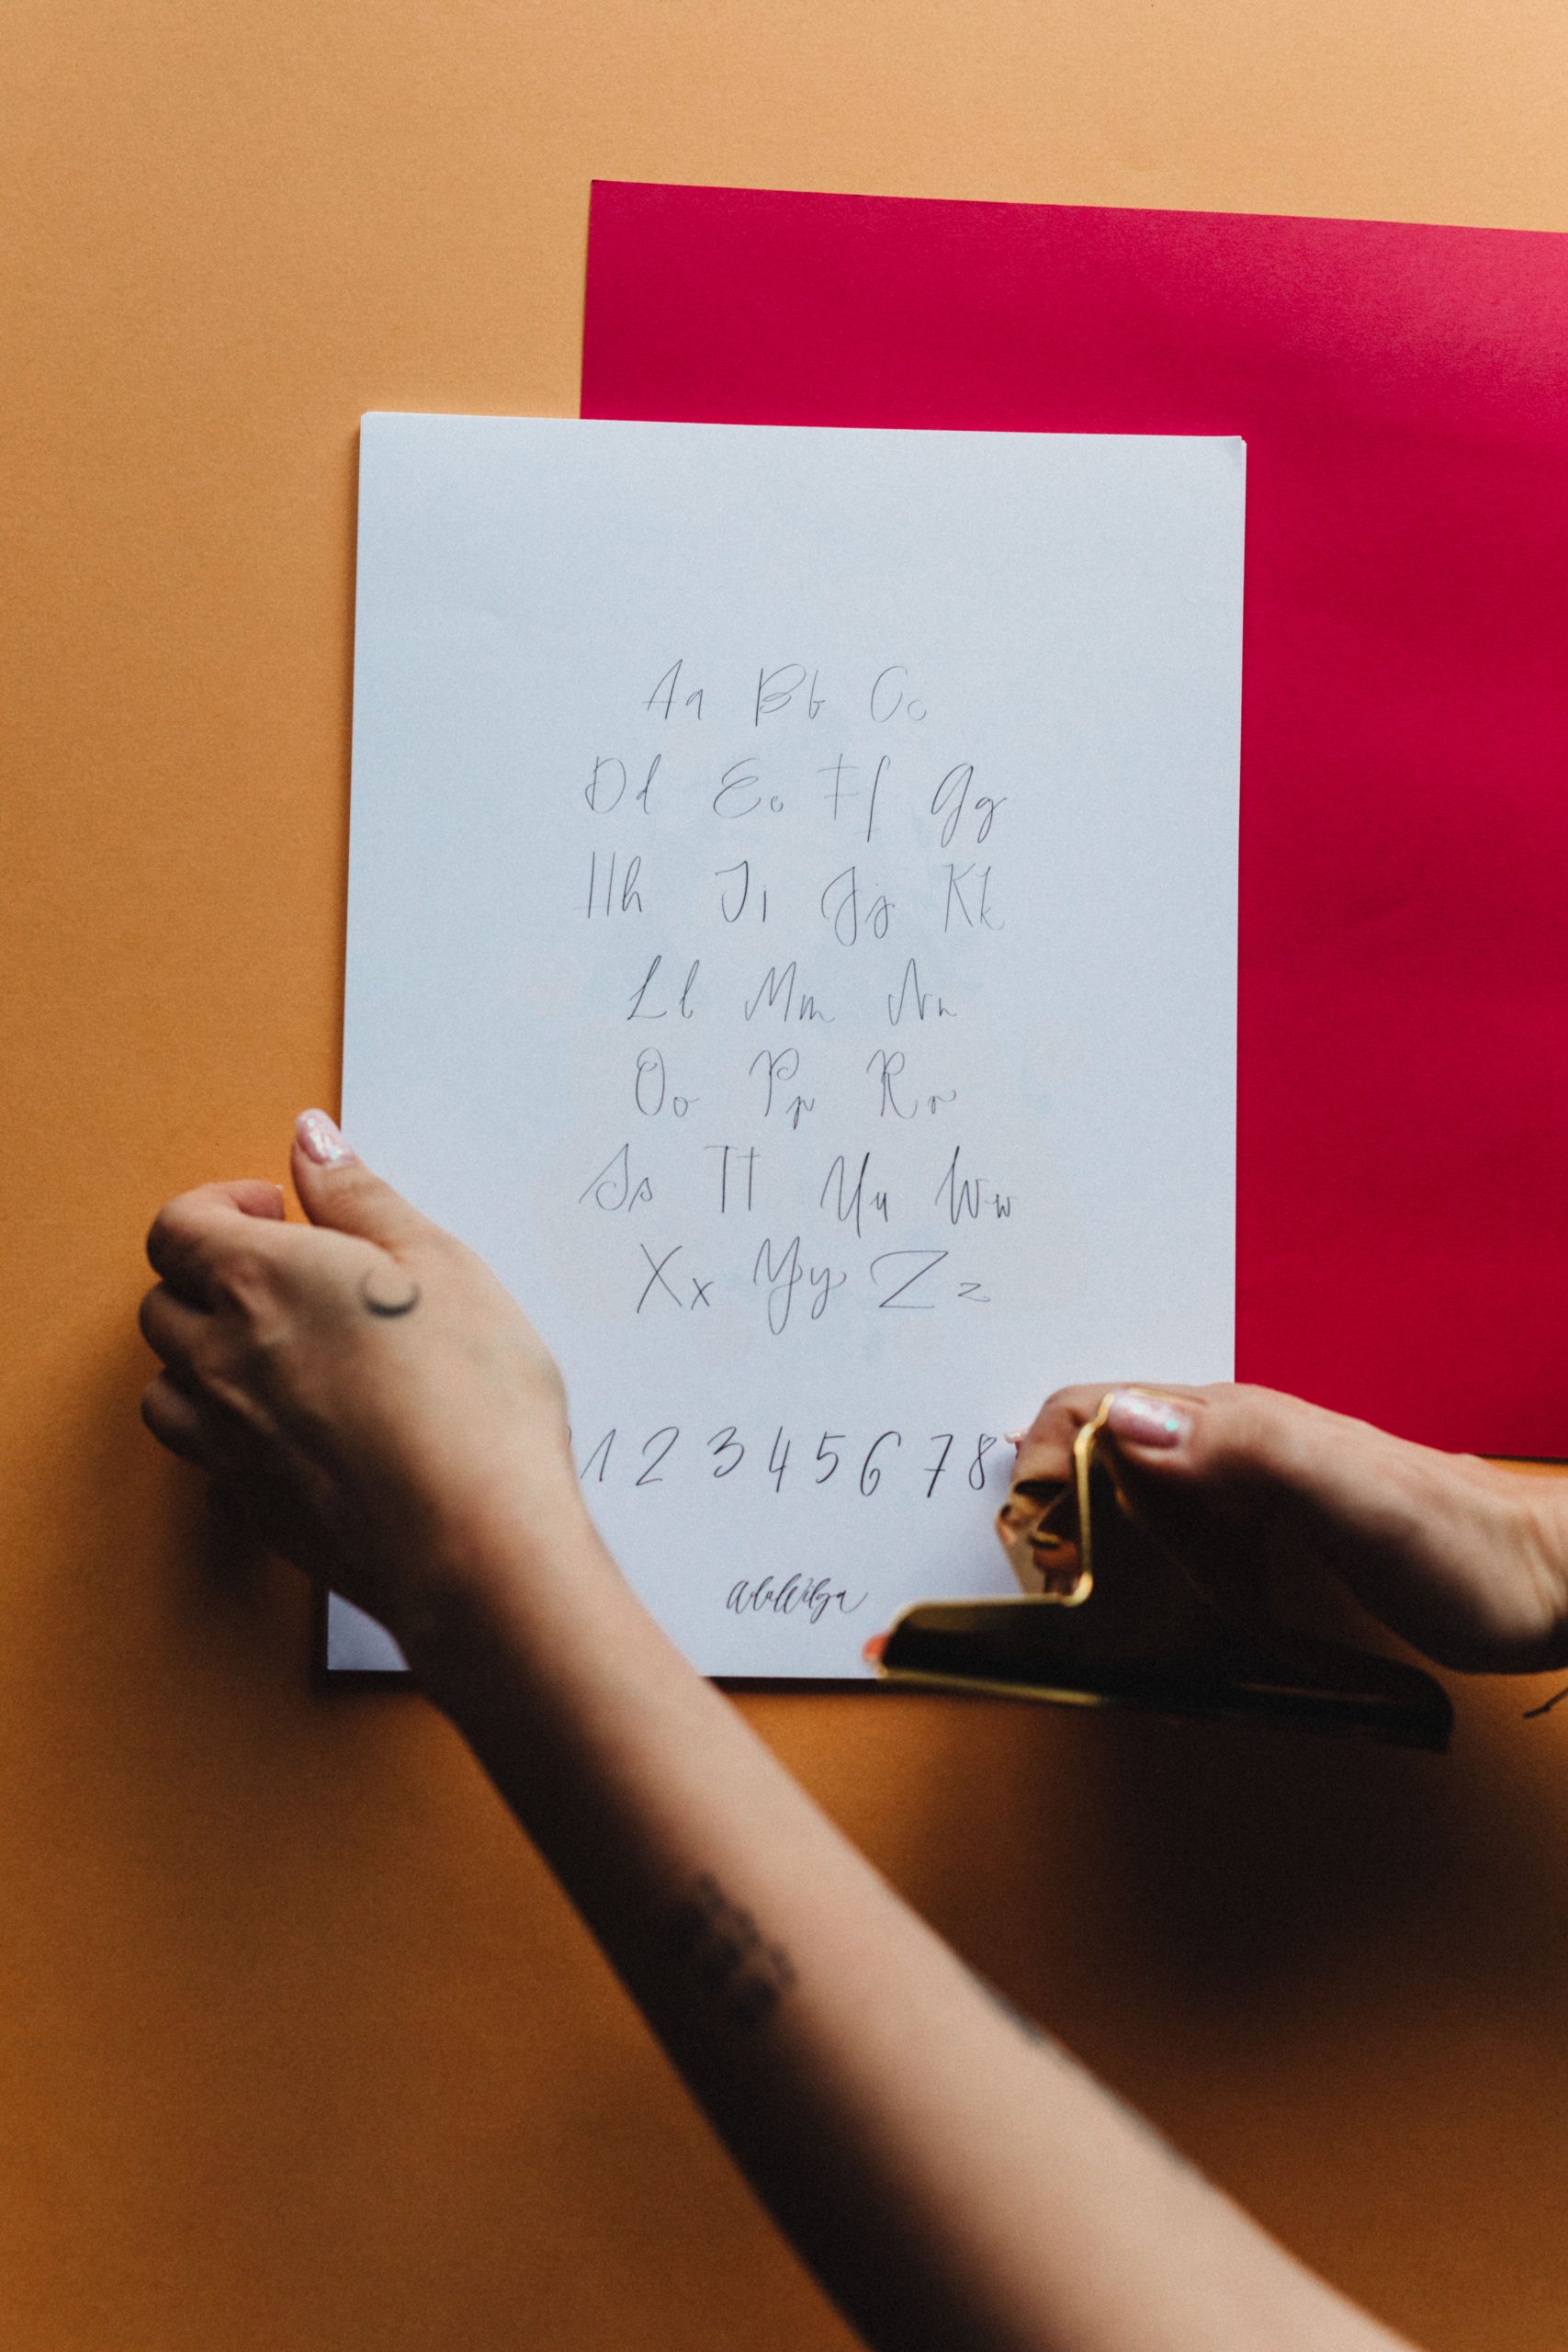 Aa Bb Cc
Dd Ee Ff Gg
Hh Ii Jj Kk
Ll Mm Nn
Oo Pp Rr
Ss Tt Uu Ww
Xx Yy Zz
1 2 3 4 5 6 7 8